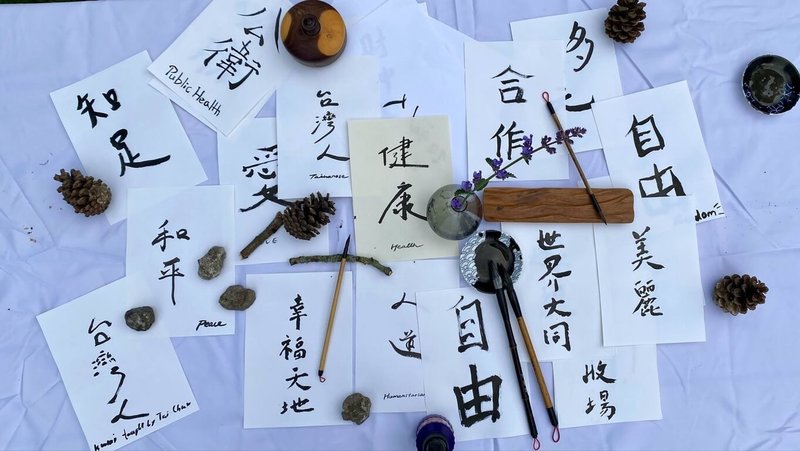 公衛
Public Health
知足
愛
台灣人
Taiwanese
健康
Health
合作
多
自由
dom
和平
Peace
台灣人
taught by Tai
幸福天地
人道
自由
世界大同
美麗
場